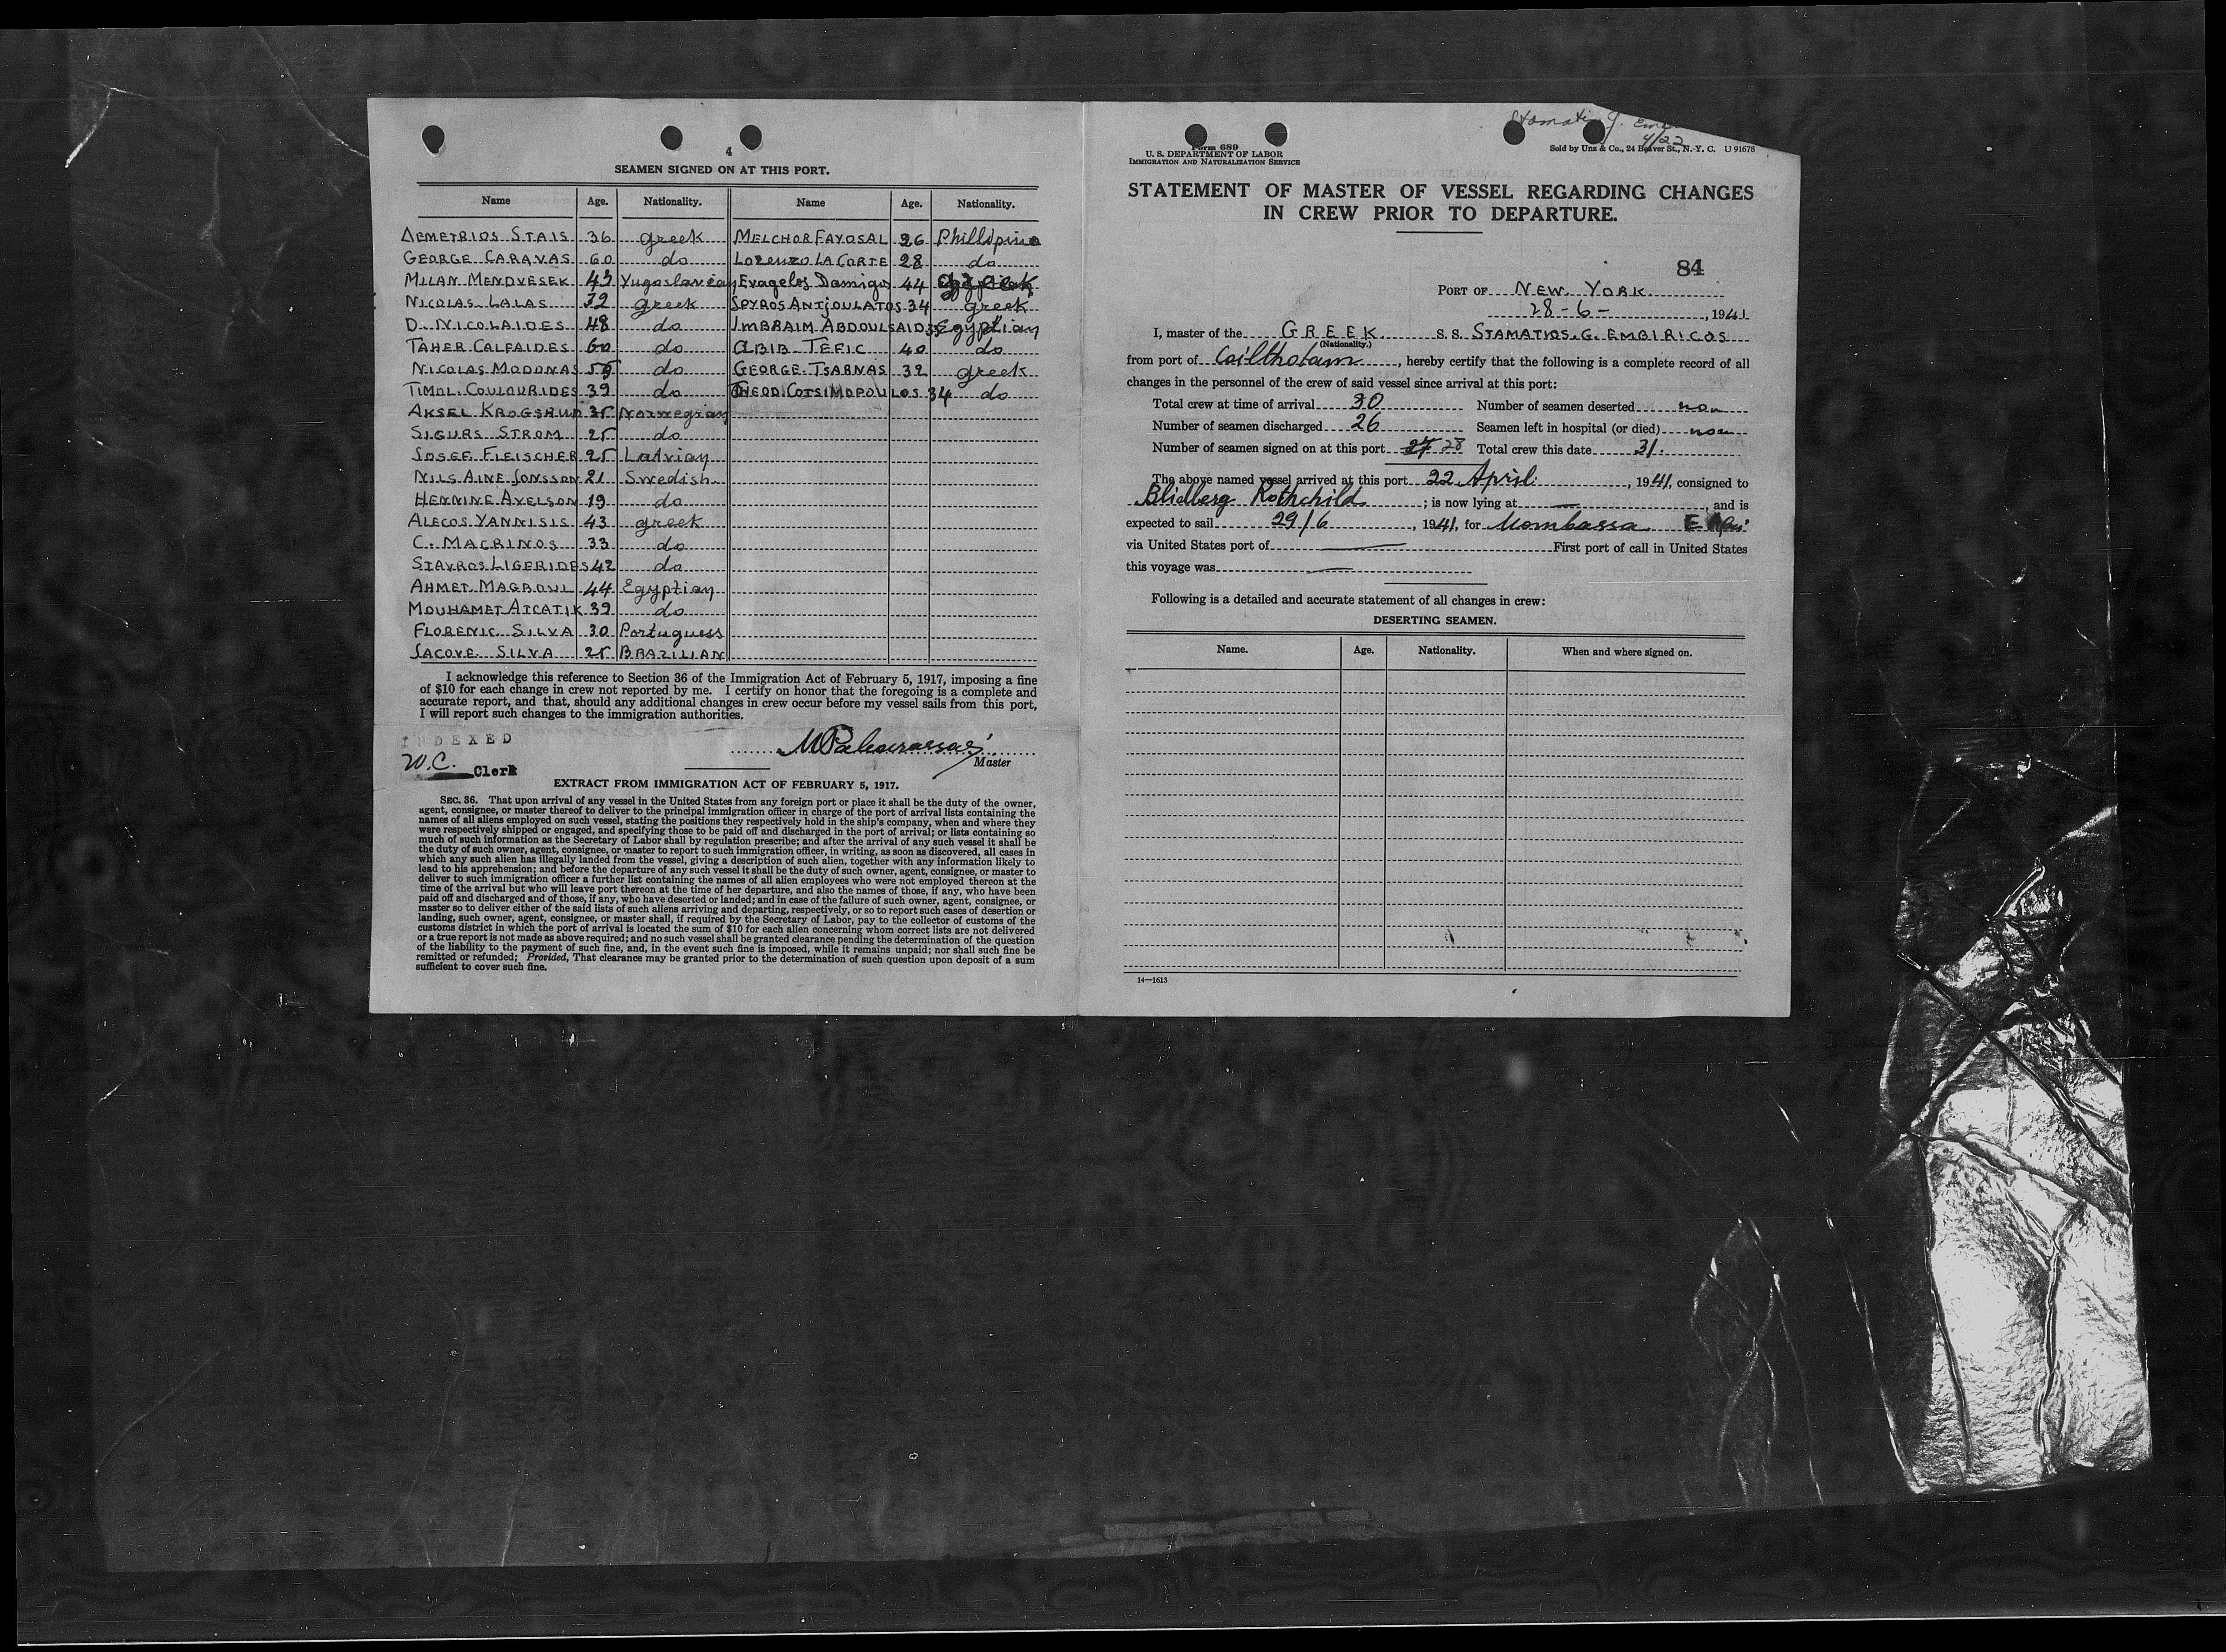 4
SEAMEN SIGNED ON AT THIS PORT.
Name Age. Nationality. Name Age. Nationality.
DEMETRIOS STAIS 36 greek MELCHOR FAYOSAL 26 Phillipine
GEORGE CARAVAS 60 do LORENZO LA CORTE 28 do
MILAN MENDVESEK 43 Yugoslavian Evagelos Damigos 44
NICOLAS LALAS 32 greek SPYROS ANTJOULATOS 34 greek
D. NICOLAIDES 48 do IMBRAIM ABDOULSAID 35 Egyptian
TAHER CALFAIDES 60 do ABIB TEFIC 40 do
NICOLAS MODONAS 59 do GEORGE TSARNAS 32 greek
TIMOL COULOURIDES 39 do THEOD. COTSIMOPOULOS 34 do
AKSEL KROGSHUD 35 Norwegian
SIGURS STROM 25 do
JOSEF FLEISCHER 25 Latvian
NILS AINE JONSSON 21 Swedish
HENNINE AXELSON 19 do
ALECOS YANNISIS 43 greek
C. MACRINOS 33 do
STAVROS LIGERIDES 42 do
AHMET MAGBOUL 44 Egyptian
MOUHAMET AICATIK 39 do
FLORENIC SILVA 30 Portuguess
JACOVE SILVA 25 BRAZILIAN
I acknowledge this reference to Section 36 of the Immigration Act of February 5, 1917, imposing a fine
of $10 for each change in crew not reported by me. I certify on honor that the foregoing is a complete and
accurate report, and that, should any additional changes in crew occur before my vessel sails from this port,
I will report such changes to the immigration authorities.
INDEXED
W.C. Clerk
Master
EXTRACT FROM IMMIGRATION ACT OF FEBRUARY 5, 1917.
SEC. 36. That upon arrival of any vessel in the United States from any foreign port or place it shall be the duty of the owner,
agent, consignee, or master thereof to deliver to the principal immigration officer in charge of the port of arrival lists containing the
names of all aliens employed on such vessel, stating the positions they respectively hold in the ship's company, when and where they
were respectively shipped or engaged, and specifying those to be paid off and discharged in the port of arrival; or lists containing so
much of such information as the Secretary of Labor shall by regulation prescribe; and after the arrival of any such vessel it shall be
the duty of such owner, agent, consignee, or master to report to such immigration officer, in writing, as soon as discovered, all cases in
which any such alien has illegally landed from the vessel, giving a description of such alien, together with any information likely to
lead to his apprehension; and before the departure of any such vessel it shall be the duty of such owner, agent, consignee, or master to
deliver to such immigration officer a further list containing the names of all alien employees who were not employed thereon at the
time of the arrival but who will leave port thereon at the time of her departure, and also the names of those, if any, who have been
paid off and discharged and of those, if any, who have deserted or landed; and in case of the failure of such owner, agent, consignee, or
master so to deliver either of the said lists of such aliens arriving and departing, respectively, or so to report such cases of desertion or
landing, such owner, agent, consignee, or master shall, if required by the Secretary of Labor, pay to the collector of customs of the
customs district in which the port of arrival is located the sum of $10 for each alien concerning whom correct lists are not delivered
or a true report is not made as above required; and no such vessel shall be granted clearance pending the determination of the question
of the liability to the payment of such fine, and, in the event such fine is imposed, while it remains unpaid; nor shall such fine be
remitted or refunded; Provided, That clearance may be granted prior to the determination of such question upon deposit of a sum
sufficient to cover such fine.
Stamati G.
4/22
Form 689
U. S. DEPARTMENT OF LABOR
IMMIGRATION AND NATURALIZATION SERVICE
Sold by Unz & Co., 24 Beaver St., N.Y. C. U 91678
STATEMENT OF MASTER OF VESSEL REGARDING CHANGES
IN CREW PRIOR TO DEPARTURE.
84
PORT OF NEW YORK
28-6-, 1941
I, master of the GREEK S. S. STAMATIOS. G. EMBIRICOS
(Nationality.)
from port of , hereby certify that the following is a complete record of all
changes in the personnel of the crew of said vessel since arrival at this port:
Total crew at time of arrival 30 Number of seamen deserted non
Number of seamen discharged 26 Seamen left in hospital (or died) non
Number of seamen signed on at this port 27 28 Total crew this date 31.
The above named vessel arrived at this port 22 April, 1941, consigned to
Blidberg Rothchild ; is now lying at — , and is
expected to sail 29/6, 1941, for Mombassa E
via United States port of — First port of call in United States
this voyage was —
Following is a detailed and accurate statement of all changes in crew:
DESERTING SEAMEN.
Name. Age. Nationality. When and where signed on.
14—1613